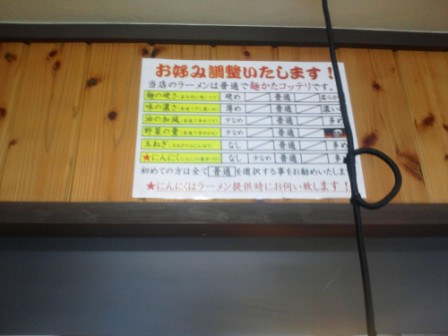 お好み調整いたします！
当店のラーメンは普通で麺かたコッテリです。
麺の硬さ 硬め 普通
味の濃さ 薄め 普通 濃い
油の加減 少なめ 普通 多め
野菜の量 少なめ 普通
玉ねぎ なし 普通 多め
★にんにく なし 少なめ 普通 多め
初めての方は全て 普通 を選択する事をお勧めいたしま
★にんにくはラーメン提供時にお伺い致します！